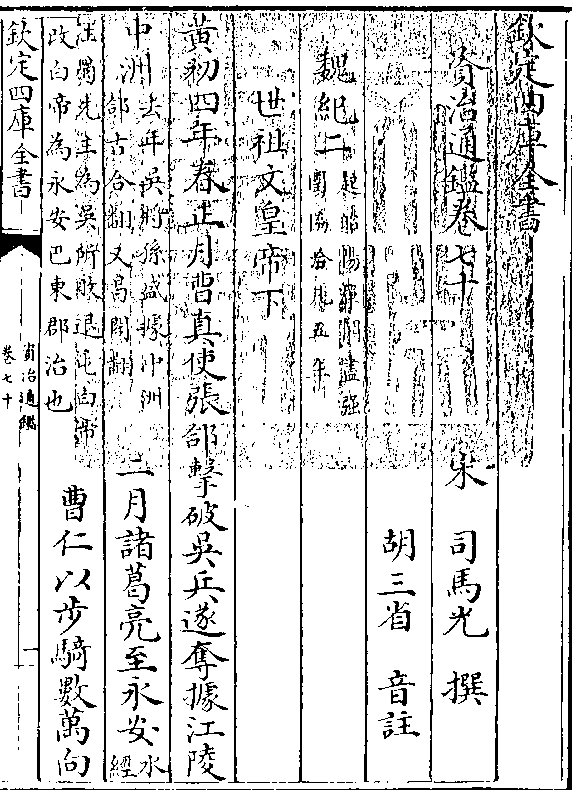 欽定四庫全書
資治通鑑卷七十
宋 司馬光 撰
胡三省 音註
魏紀二 起昭陽單閼盡強圉協洽凡五年
世祖文皇帝下
黃初四年春正月曹真使張郃擊破吳兵遂奪據江陵
中洲 去年吳將孫盛據中洲郃古合翻又曷閤翻 二月諸葛亮至永安 水經
注蜀先主為吳所敗退屯白帝改白帝為永安巴東郡治也 曹仁以步騎數萬向
欽定四庫全書
資治通鑑
卷七十
一